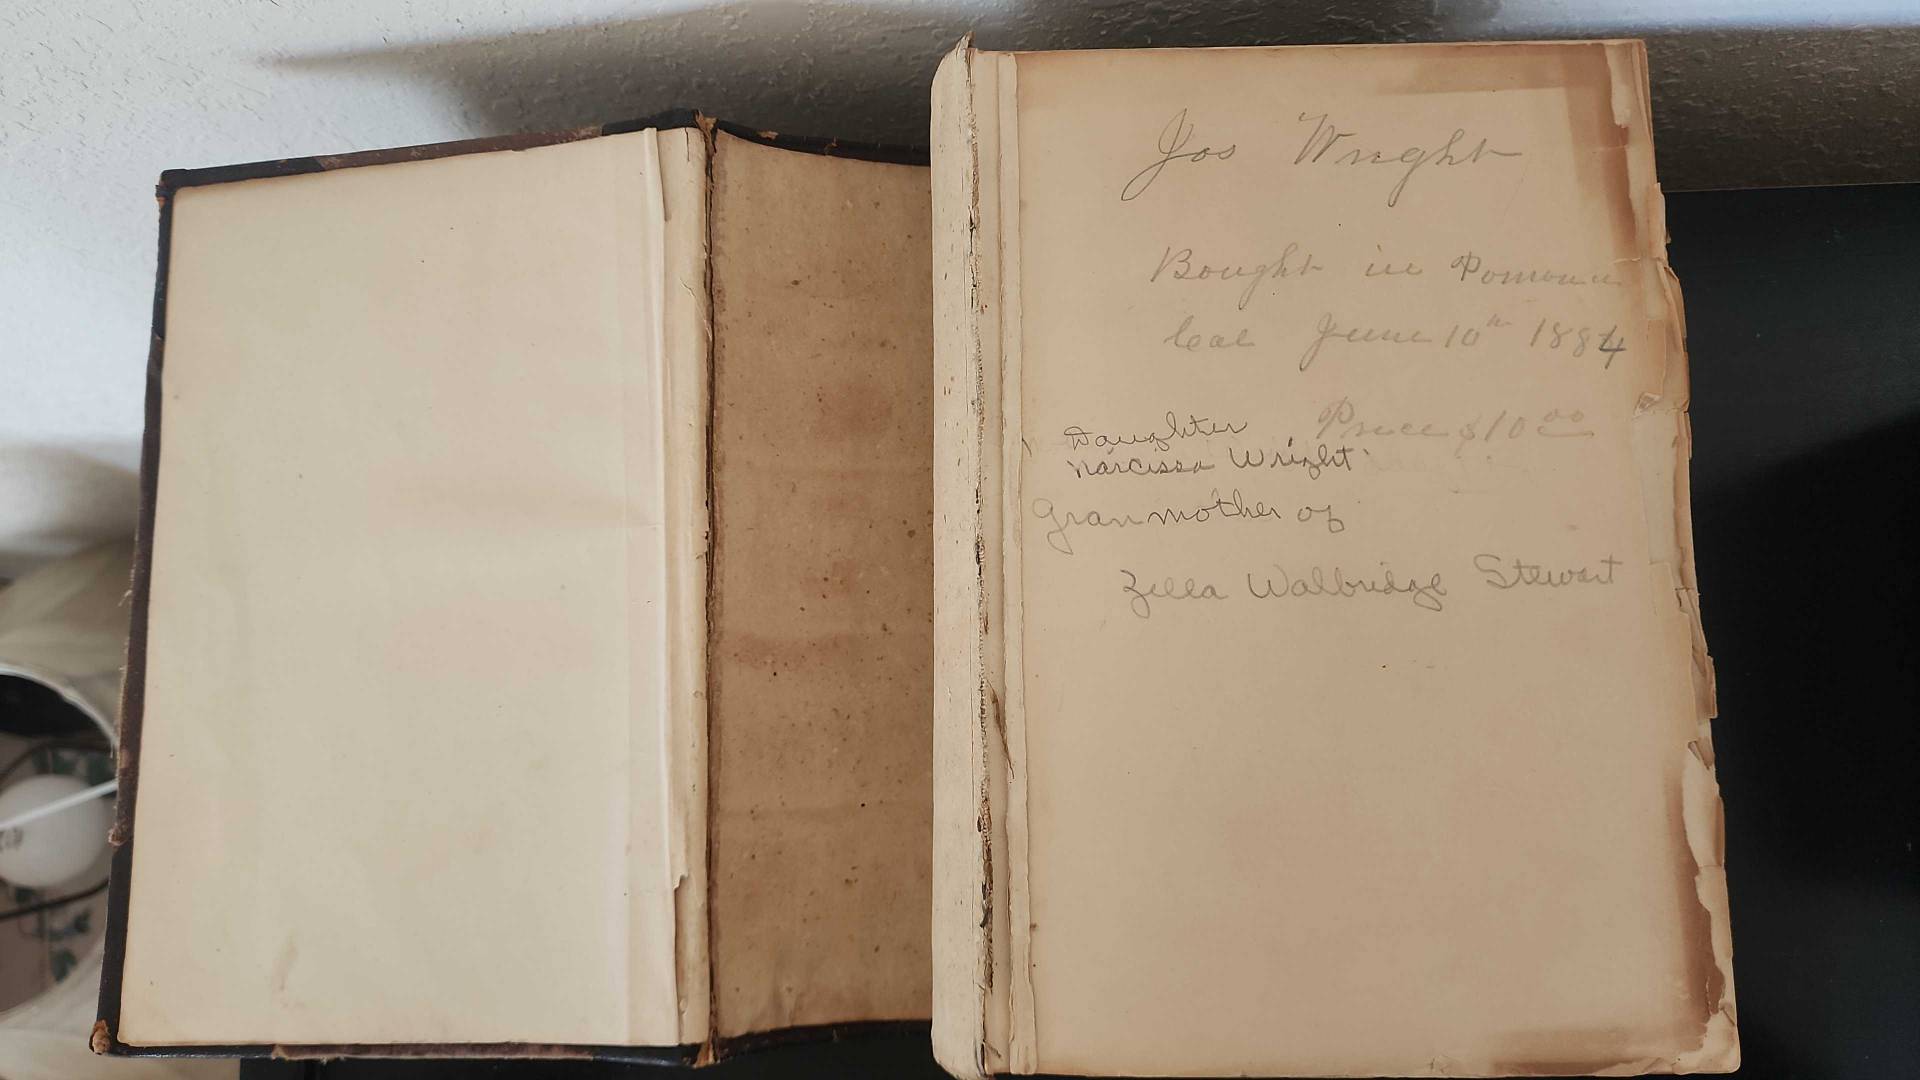 Jos Wright
Bought in Pomona
Cal June 10th 1884
Price $10.00
Daughter
Narcissa Wright
Granmother of
Zella Walbridge Stewart